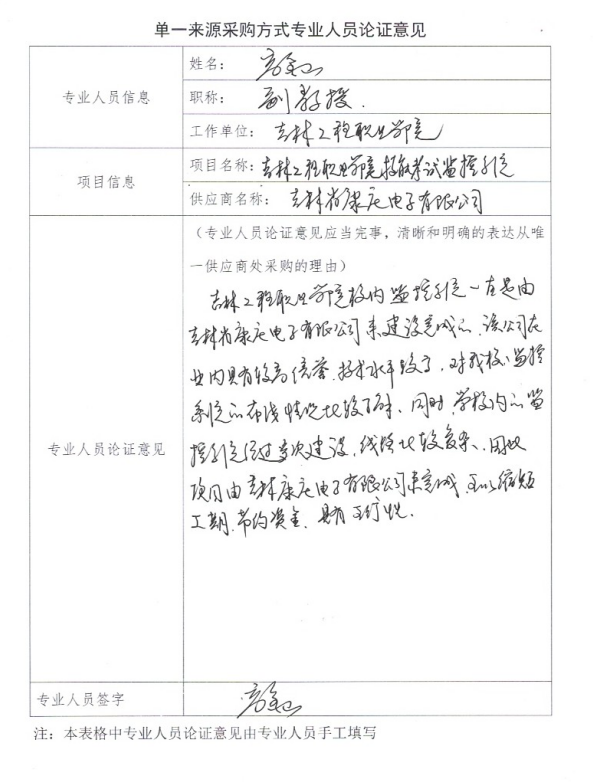 单一来源采购方式专业人员论证意见
专业人员信息
姓名：
职称：副教授.
工作单位：吉林工程职业学院
项目信息
项目名称：吉林工程职业学院 考试监控系统
供应商名称：吉林省康庄电子有限公司
专业人员论证意见
（专业人员论证意见应当完事，清晰和明确的表达从唯
一供应商处采购的理由）
吉林工程职业学院校内监控系统一直是由
吉林省康庄电子有限公司来建设完成的、该公司在
业内具有较高信誉、技术水平较高，对我校监控
系统的布线情况比较了解、同时学校内的监
控系统经过多次建设、线路比较复杂、因此
项目由吉林康庄电子有限公司来完成、可以缩短
工期、节约资金、具有可行性.
专业人员签字
注：本表格中专业人员论证意见由专业人员手工填写